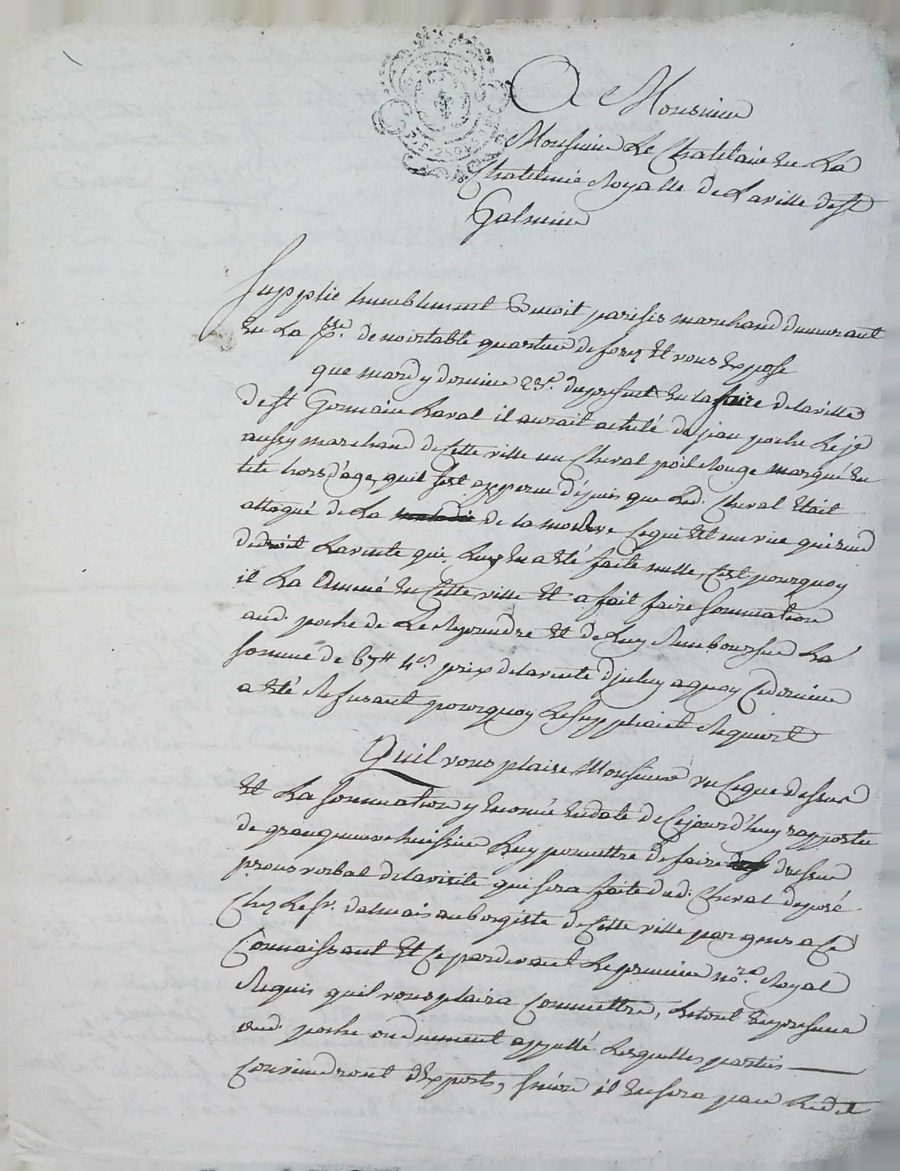 A Monsieur
Monsieur Le Chatelain En La
Chatelenie Royalle De Laville de St
Galmier
Supplie humblement Benoit parisis marchand demeurant
En La psse. de noirtable quartier de forez Et vous Expose
que mardy dernier 23e. du present En La foire de laville
De St Germain Laval il auroit acheté de jean poche Le je
aussy marchand de Cette ville un Cheval poil Rouge marqué En
tete hors d'age, quil sest apperçu depuis que Led. Cheval Etait
attaqué de La de la morve Ce qui Est un vice qui rend
de droit La vente qui Luy En a Eté faite nulle, C'est pourquoy
il La Amené En Cette ville Et a fait faire sommation
aud. poche de Le Reprendre Et de Luy Rembourser La
somme de 67# 4s prix de la vente d'jceluy a quoy Ce dernier
a Eté Refusant pourquoy Le suppliant Requiert
Quil vous plaise Monsieur vu Ce que dessus
Et La sommation y Enoncé En date de Cejourd'huy rapportée
de huissier Luy permettre de faire dresser
procés verbal de la visite qui sera faite dud. Cheval deposé
Chez Le sr. dalmais aubergiste de Cette ville par gens a Ce
Connaissant Et Ce pardevant Le premier nore. Royal
Requis quil vous plaira Commettre, Le tout En presence
dud. poche ou dument appellé Lesquelles parties
Conviendront d'Experts, sinon il En sera pour Led.